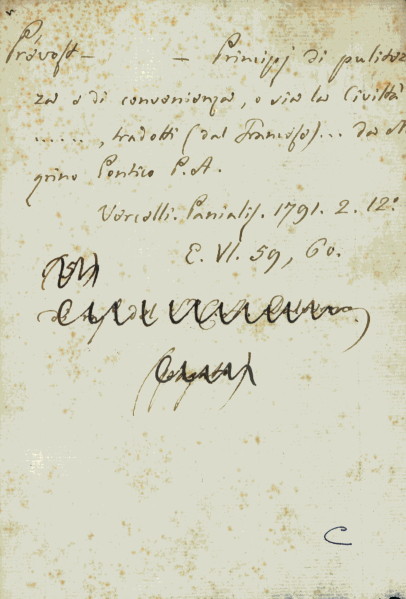 Prévost — — Principj di pulitez
za e di convenienza, o sia la Civiltà
......, tradotti (dal Francese)... da A
grino Pontico P. A.
Vercelli. Panialis. 1791. 2. 12º
E. VI. 59, 60.
C